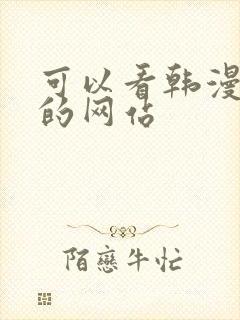 可以看韩漫
的网站
陌恋牛忙